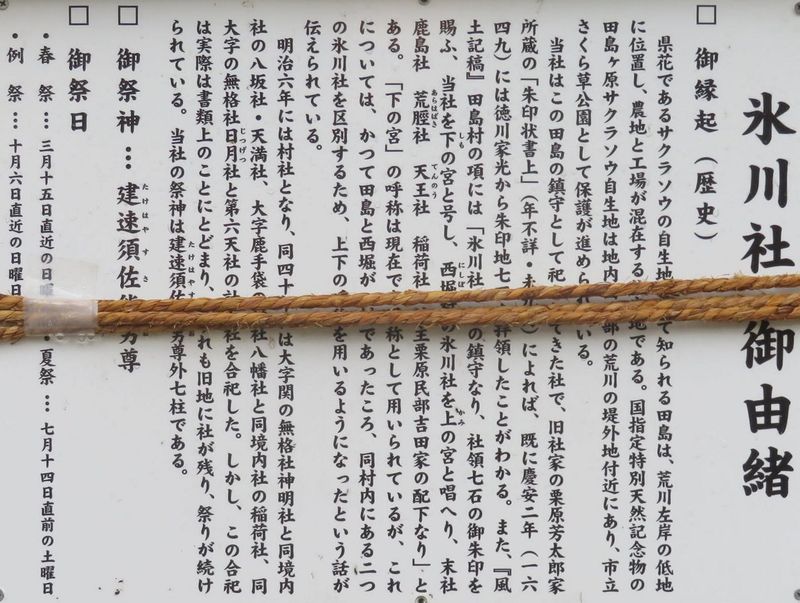 氷川社 御由緒
□ 御縁起（歴史）
県花であるサクラソウの自生地 て知られる田島は、荒川左岸の低地
に位置し、農地と工場が混在する 地である。国指定特別天然記念物の
田島ヶ原サクラソウ自生地は地内 部の荒川の堤外地付近にあり、市立
さくら草公園として保護が進めら いる。
当社はこの田島の鎮守として祀 てきた社で、旧社家の栗原芳太郎家
所蔵の「朱印状書上」（年不詳・ ）によれば、既に慶安二年（一六
四九）には徳川家光から朱印地七 拝領したことがわかる。また、『風
土記稿』田島村の項には「氷川社 の鎮守なり、社領七石の御朱印を
賜ふ、当社を下の宮と号し、西堀 の氷川社を上の宮と唱へり、末社
鹿島社 荒脛社 天王社 稲荷社 主栗原民部吉田家の配下なり」と
ある。「下の宮」の呼称は現在で 称として用いられているが、これ
については、かつて田島と西堀が であったころ、同村内にある二つ
の氷川社を区別するため、上下の を用いるようになったという話が
伝えられている。
明治六年には村社となり、同四十 は大字関の無格社神明社と同境内
社の八坂社・天満社、大字鹿手袋の 社八幡社と同境内社の稲荷社、同
大字の無格社日月社と第六天社の 社を合祀した。しかし、この合祀
は実際は書類上のことにとどまり、 れも旧地に社が残り、祭りが続け
られている。当社の祭神は建速須佐 男尊外七柱である。
□ 御祭神… 建速須佐 男尊
□ 御祭日
・春 祭… 三月十五日直近の日曜 ・夏祭… 七月十四日直前の土曜日
・例 祭… 十月六日直近の日曜日